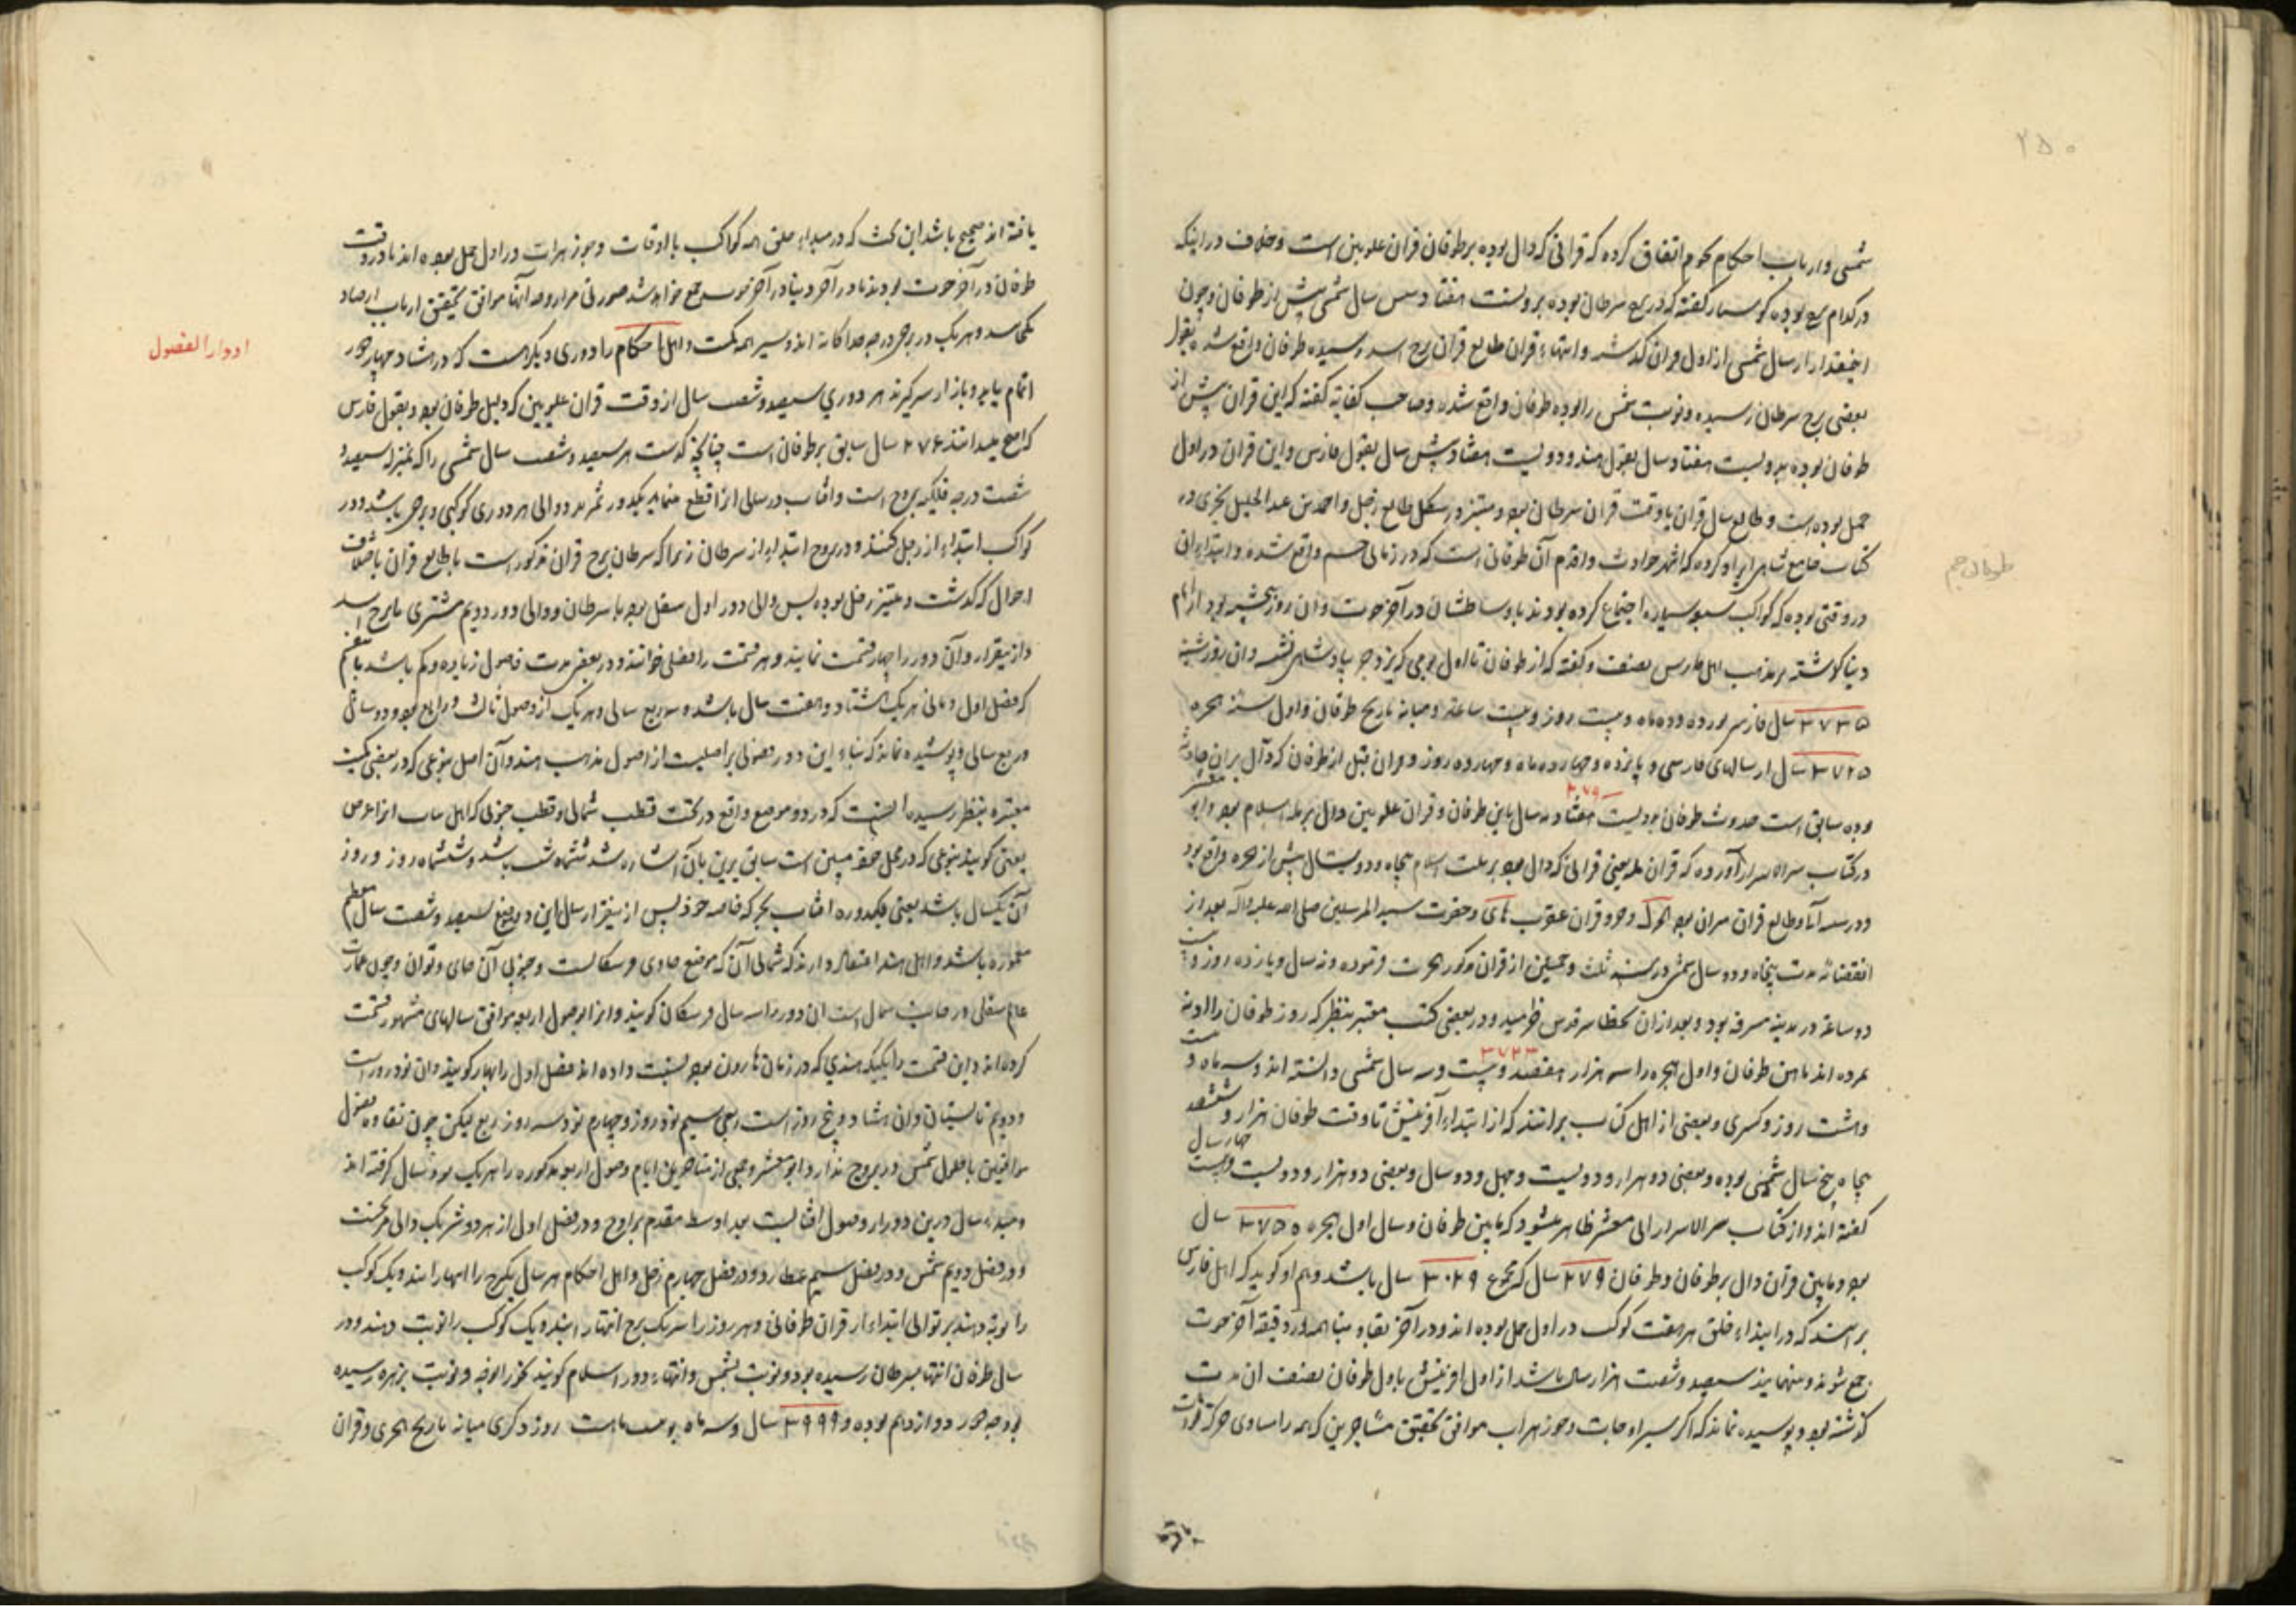 ۲۵۰
شمسی وارباب احکام نجوم اتفاق کرده که قرانی که دال بوده بر طوفان قران علویین است وخلاف در اینکه
در کدام برج بوده کوسیار گفته که در برج سرطان بوده بدویست هفتاد وسس سال شمسی پیش از طوفان وچون
اینمقدار از سال شمسی از اول قران گذشته وانتهاء قران طالع قران برج اسد رسیده طوفان واقع شده بقول
بعضی برج سرطان رسیده ونوبت شمس را بوده طوفان واقع شده وصاحب کفایه گفته که این قران پیش از
طوفان بوده بدویست هفتاد سال بقول هند ودویست هفتاد وشش سال بقول فارس واین قران در اول
حمل بوده است وطالع سال قران با وقت قران سرطان بود ومبتز در شکل طالع زحل واحمد بن عبد الجلیل سجزی در
کتاب جامع شاهی ایراد کرده که اشهر حوادث واقدم آن طوفانی است که در زمان واقع شده وابتداء آن
در وقتی بوده که کواکب سبعه سیاره اجتماع کرده بودند باوساطشان در آخر حوت وآن روز پنجشنبه بود از ایام
طوفان
دنیا گذشته بر مذهب اهل فارس بنصف وگفته که از طوفان تا اول یومی که یزدجرد پادشاهی نشسته وآن روز شنبه
۳۷۳۵ سال فارسی بوده وده ماه وبیست روز وبیست ساعه ومیانه تاریخ طوفان واول سنه هجره
۳۷۲۵ سال از سالهای فارسی و پانزده روز وقران قبل از طوفان که دال بر آن حادثه
بوده سابق است حدوث طوفان بدویست هفتاد ونه سال باین طوفان وقران علویین دال بر مله اسلام بود وابو معشر
۲۷۹
در کتاب سر اسرار آورده که قران مله یعنی قرانی که دال بود بر ملت اسلام پنجاه ودو سال پیش از هجره واقع بود
ودر سه آنا وطالع قران میزان بود وجزو قران عقرب وحضرت سید المرسلین صلی الله علیه وآله بعد از
انقضاء مدت پنجاه ودو سال شمسی در سنه ثلث وخمسین از قران مذکور هجرت فرموده وده سال ویازده روز وبیست
دو ساعه در مدینه مشرفه بود وبعد از آن بحظایر قدس خرامید ودر بعضی کتب معتبر بنظر که روز طوفان را الوند
۳۷۲۳
کرده اند مابین طوفان واول هجره را سه هزار هفتصد وبیست وسه سال شمسی دانسته اند وسه ماه وبیست
وهشت روز وکسری وبعضی از اهل کتاب برانند که از ابتداء آفرینش تا وقت طوفان هزار وششصد
پنجاه پنج سال شمسی بوده وبعضی دو هزار ودویست وچهل ودو سال وبعضی دو هزار ودویست وبیست چهار سال
گفته اند واز کتاب سر الاسرار ابی معشر ظاهر میشود که مابین طوفان وسال اول هجره ۳۷۵۰ سال
بود ومابین قران دال بر طوفان وطوفان ۲۷۹ سال که مجموع ۳۰۲۹ سال باشد وهم او گوید که اهل فارس
برانند که در ابتداء خلق هر هفت کوکب در اول حمل بوده اند ودر آخر بقاء دنیا همه در دقیقه آخر حوت
جمع شوند ومنهما نیز سیصد وشصت هزار سال باشد از اول آفرینش تا اول طوفان بنصف آن مدت
گذشته بود وپوشیده نماند که اگر سیر اوجات وجوزهرات موافق تحقیق متاخرین که همه را مساوی حرکة ثوابت

یافته اند صحیح باشد این بحث که در مبداء خلق همه کواکب با اوجات وجوزهرات در اول حمل بوده اند ودر وقت
طوفان در آخر حوت بودند ودر آخر دنیا در آخر حوت جمع خواهد شد صورتی ندارد وجه آنها موافق تحقیق ارباب ارصاد
نمی رسد وهر یک در برجی ودرجه جداگانه اند وسیر همه یکست واهل احکام را دوری دیگر است که در هشتاد وچهار دور
ادوار الفصول
اتمام یابد وباز از سر گیرند هر دوری سیصد وشصت سال از وقت قران علویین که دلیل طوفان بود وبقول فارس
که اصح میدانند ۲۷۶ سال سابق بر طوفان است چنانچه گذشت هر سیصد وشصت سال شمسی را که بمنزله سیصد و
شصت درجه فلکیه بروج است وآفتاب در سالی آنرا قطع مینماید یکدور شمرند ووالی هر دوری کوکبی وبرجی باشد ودر
کواکب ابتداء از زحل کنند ودر بروج ابتداء از سرطان زیرا که سرطان برج قران مذکور است یا طالع قران باختلاف
احوال که گذشت ومبتز زحل بوده پس والی دور اول زحل بود با سرطان ووالی دور دویم مشتری با برج اسد
واز بیقرار وآن دور را چهار قسمت نمایند وهر قسمت را فصلی خوانند ودر بعضی مدت فصول زیاده وکم باشد
که فصل اول وثانی هر یک هشتاد وهفت سال باشد وربع سالی وهر یک از فصول ثالث ورابع نود ودو سال
وربع سالی وپوشیده نماند که بناء این دور وفصول بر اصلیست از اصول مذهب هند وآن اصل بنوعی که در بعضی کتب
معتبره بنظر رسیده آنست که در دو موضع واقع در تحت قطب شمالی وقطب جنوبی که اهل حساب آنرا عرض
یعنی گویند بنوعی که در محل خود مبین است سابق برین بآن اشاره شد ششماه شب باشد وششماه روز وروز
آن یکسال باشد یعنی یکدوره آفتاب بحرکه خاصه خود پس از بیقرار سال این دو موضع سیصد وشصت سال
معموره باشد واهل هند اعتقاد دارند که شمالی آن که موضع جاوی ومسکانست وجنوبی آن جای دیوان وچون عمارت
عالم سفلی در جانب شمال است این دور را سال فرسکان گویند وآنرا بفصول اربعه موافق سالهای مشهور قسمت
کرده اند واین قسمت را بکنکه هندی که در زمان هارون بود نسبت داده اند فصل اول را بهار گویند وآن نود روز است
ودویم تابستان وآن هشتاد وپنج روز است ربعی سیم نود روز وچهارم نود وسه روز وربع لیکن چون تفاوت فصول
موافقتی با حلول شمس در بروج ندارد ابو معشر وجمعی از متاخرین ایام فصول اربعه مذکوره را هر یک نود سال گرفته اند
ومبداء سال درین ادوار وصول آفتابست بعد اوسط مقدم بر اوج ودر فصل اول از هر دور شریک والی مریخست
ودر فصل دویم شمس ودر فصل سیم عطارد ودر فصل چهارم زحل واهل احکام هر سال یکبرج را انتها رسانند ویک کوکب
را نوبت دهند بر توالی ابتداء از قران طوفانی وهر روز را هر یک برج انتها دهند ویک کوکب را نوبت دهند ودر
سال طوفان انتها بسرطان رسیده بود ونوبت بشمس وانتهاء دور اسلام گویند بجوزا بود ونوبت بزهره رسیده
بود جه دور دوازدهم بوده و ۳۹۹۹ سال وسه ماه روز وکسری میانه تاریخ هجری وقران